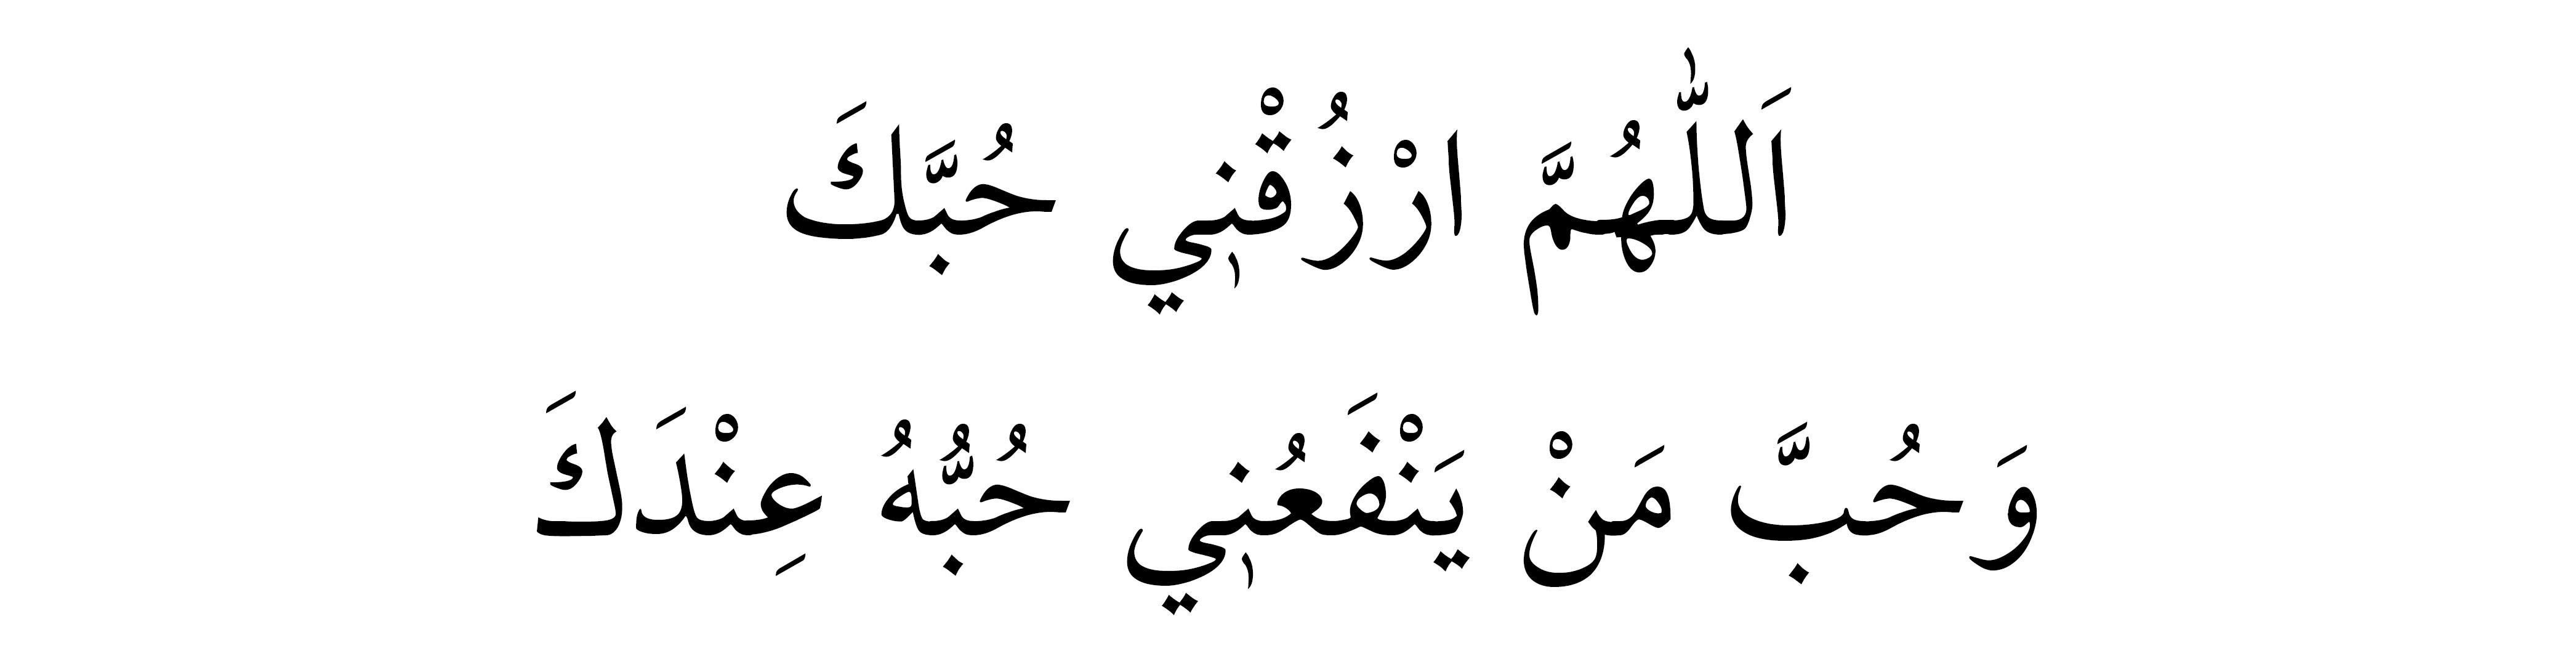 اَللّٰهُمَّ ارْزُقْنٖي حُبَّكَ
وَحُبَّ مَنْ يَنْفَعُنٖي حُبُّهُ عِنْدَكَ